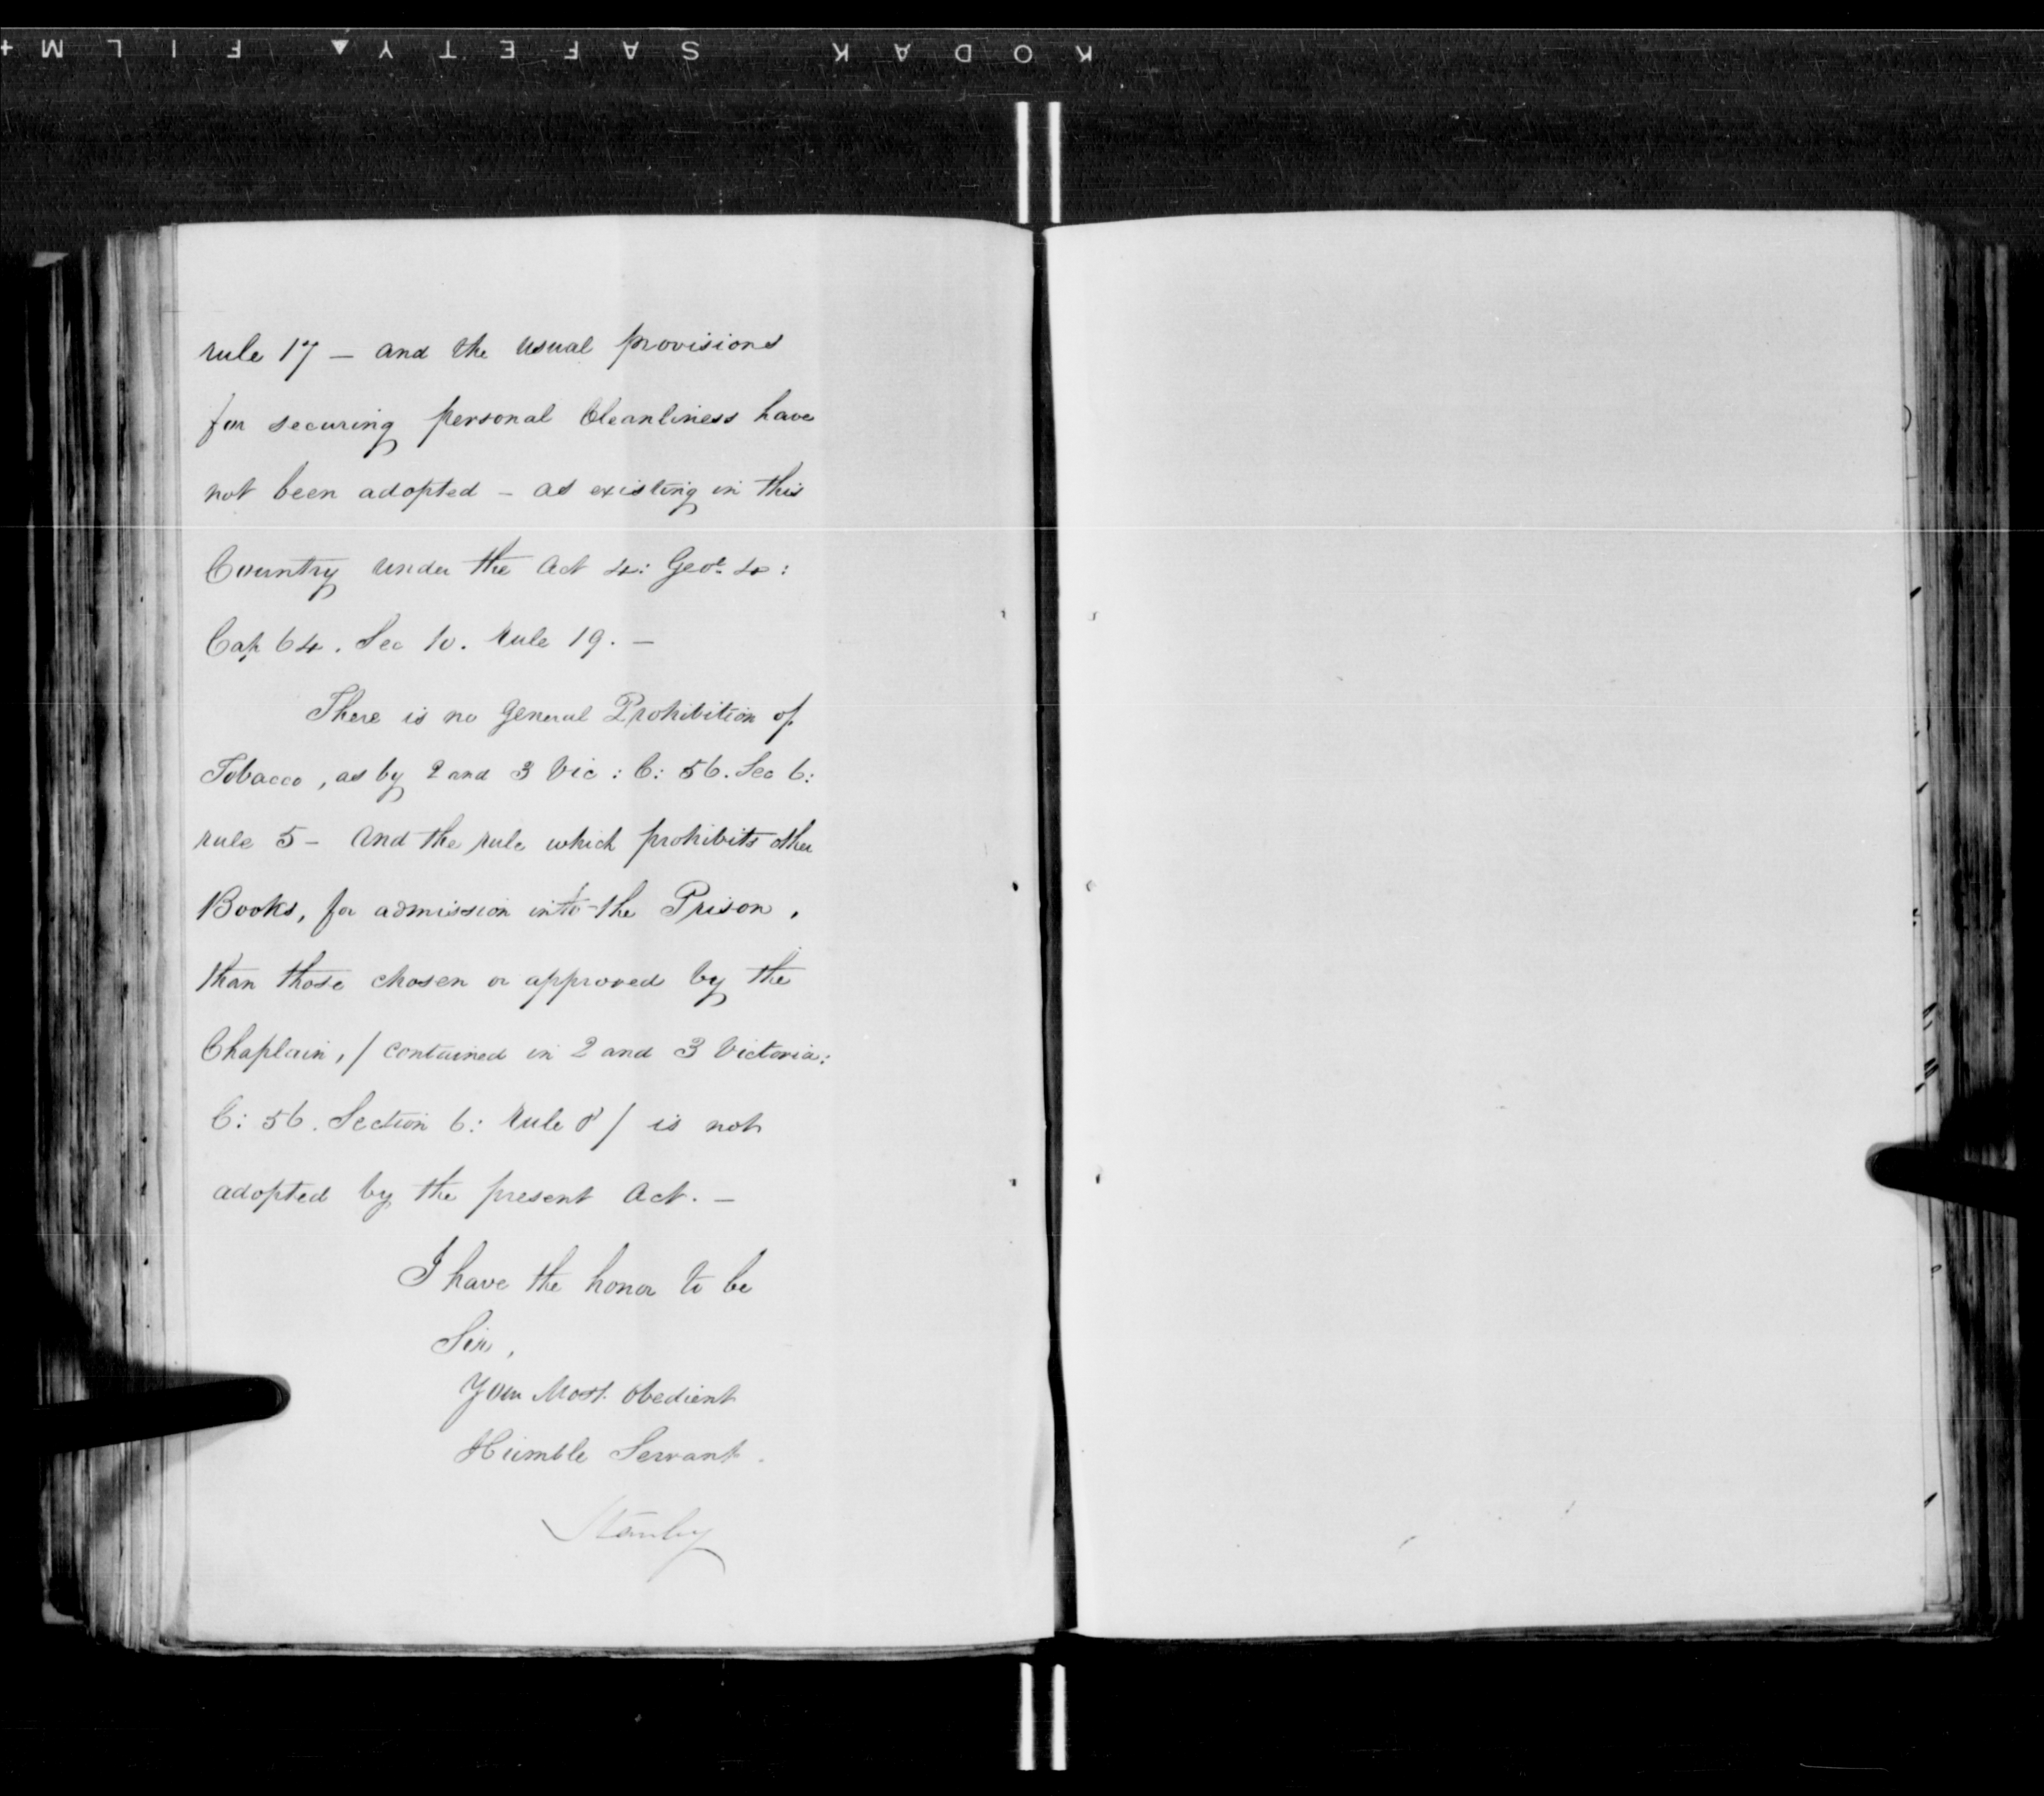 KODAK SAFETY▲ FILM +
rule 17 — and the usual provisions
for securing personal Cleanliness have
not been adopted – as existing in this
Country under the Act 4: Geoe. 4:
Cap 64. Sec 10. Rule 19. —
There is no General Prohibition of
Tobacco, as by 2 and 3 Vic: C: 56. Sec 6:
rule 5 – and the rule which prohibits other
Books, for admission into the Prison,
than those chosen or approved by the
Chaplain, / contained in 2 and 3 Victoria:
C: 56. Section 6: Rule 8 / is not
adopted by the present Act. —
I have the honor to be
Sir,
Your Most Obedient
Humble Servant.
Stanley